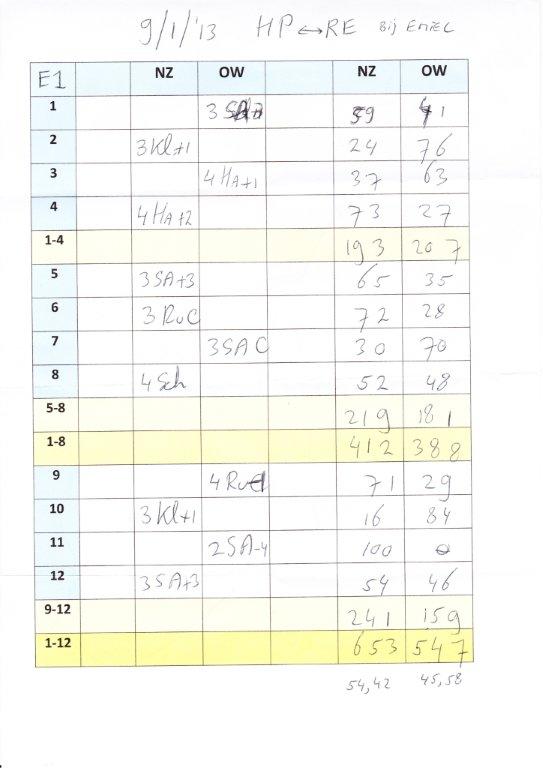 9/1/'13 HP ↔ RE Bij EMIEL
E1 NZ OW NZ OW
1 59 41
2 3Kl+1 24 76
3 4HA+1 37 63
4 4HA+2 73 27
1-4 193 207
5 3SA+3 65 35
6 3RuC 72 28
7 3SAC 30 70
8 4Sch 52 48
5-8 219 181
1-8 412 388
9 71 29
10 3Kl+1 16 84
11 2SA-4 100 0
12 3SA+3 54 46
9-12 241 159
1-12 653 547
54,42 45,58